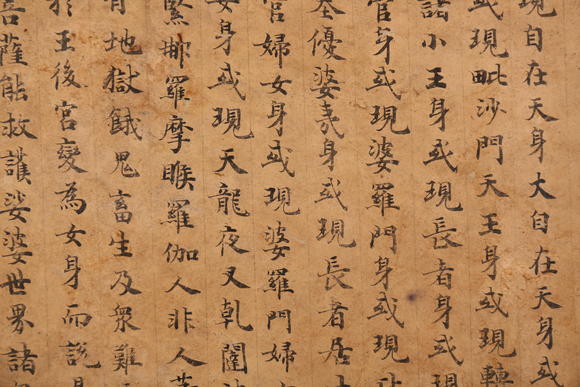 現自在天身大自在天身或
或現毗沙門天王身或現轉
諸小王身或現長者身或現
官身或現婆羅門身或現
優婆夷身或現長者居
宮婦女身或現婆羅門婦
女身或現天龍夜叉乹闥
緊那羅摩睺羅伽人非人等
有地獄餓鬼畜生及衆難
於王後宮變為女身而說是
菩薩能救護娑婆世界諸